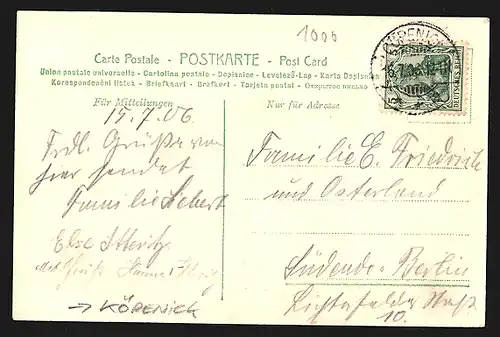 1006
Carte Postale - POSTKARTE - Post Card
Union postale universelle - Cartolina postale - Dopisnice - Levelező-Lap - Karta
Korespondenční lístek - Briefkaart - Brefkort - Tarjeta postal - Открытое письмо
Für Mitteilungen
Nur für Adresse
CÖPENICK
DEUTSCHES REICH
15.7.06.
Frdl. Grüße von
hier sendet
Familie
Else
Mit Gruß
→ KÖPENICK
Familie E. Friedrich
und Osterland
Südende-Berlin
Lichterfelder Straß
10.